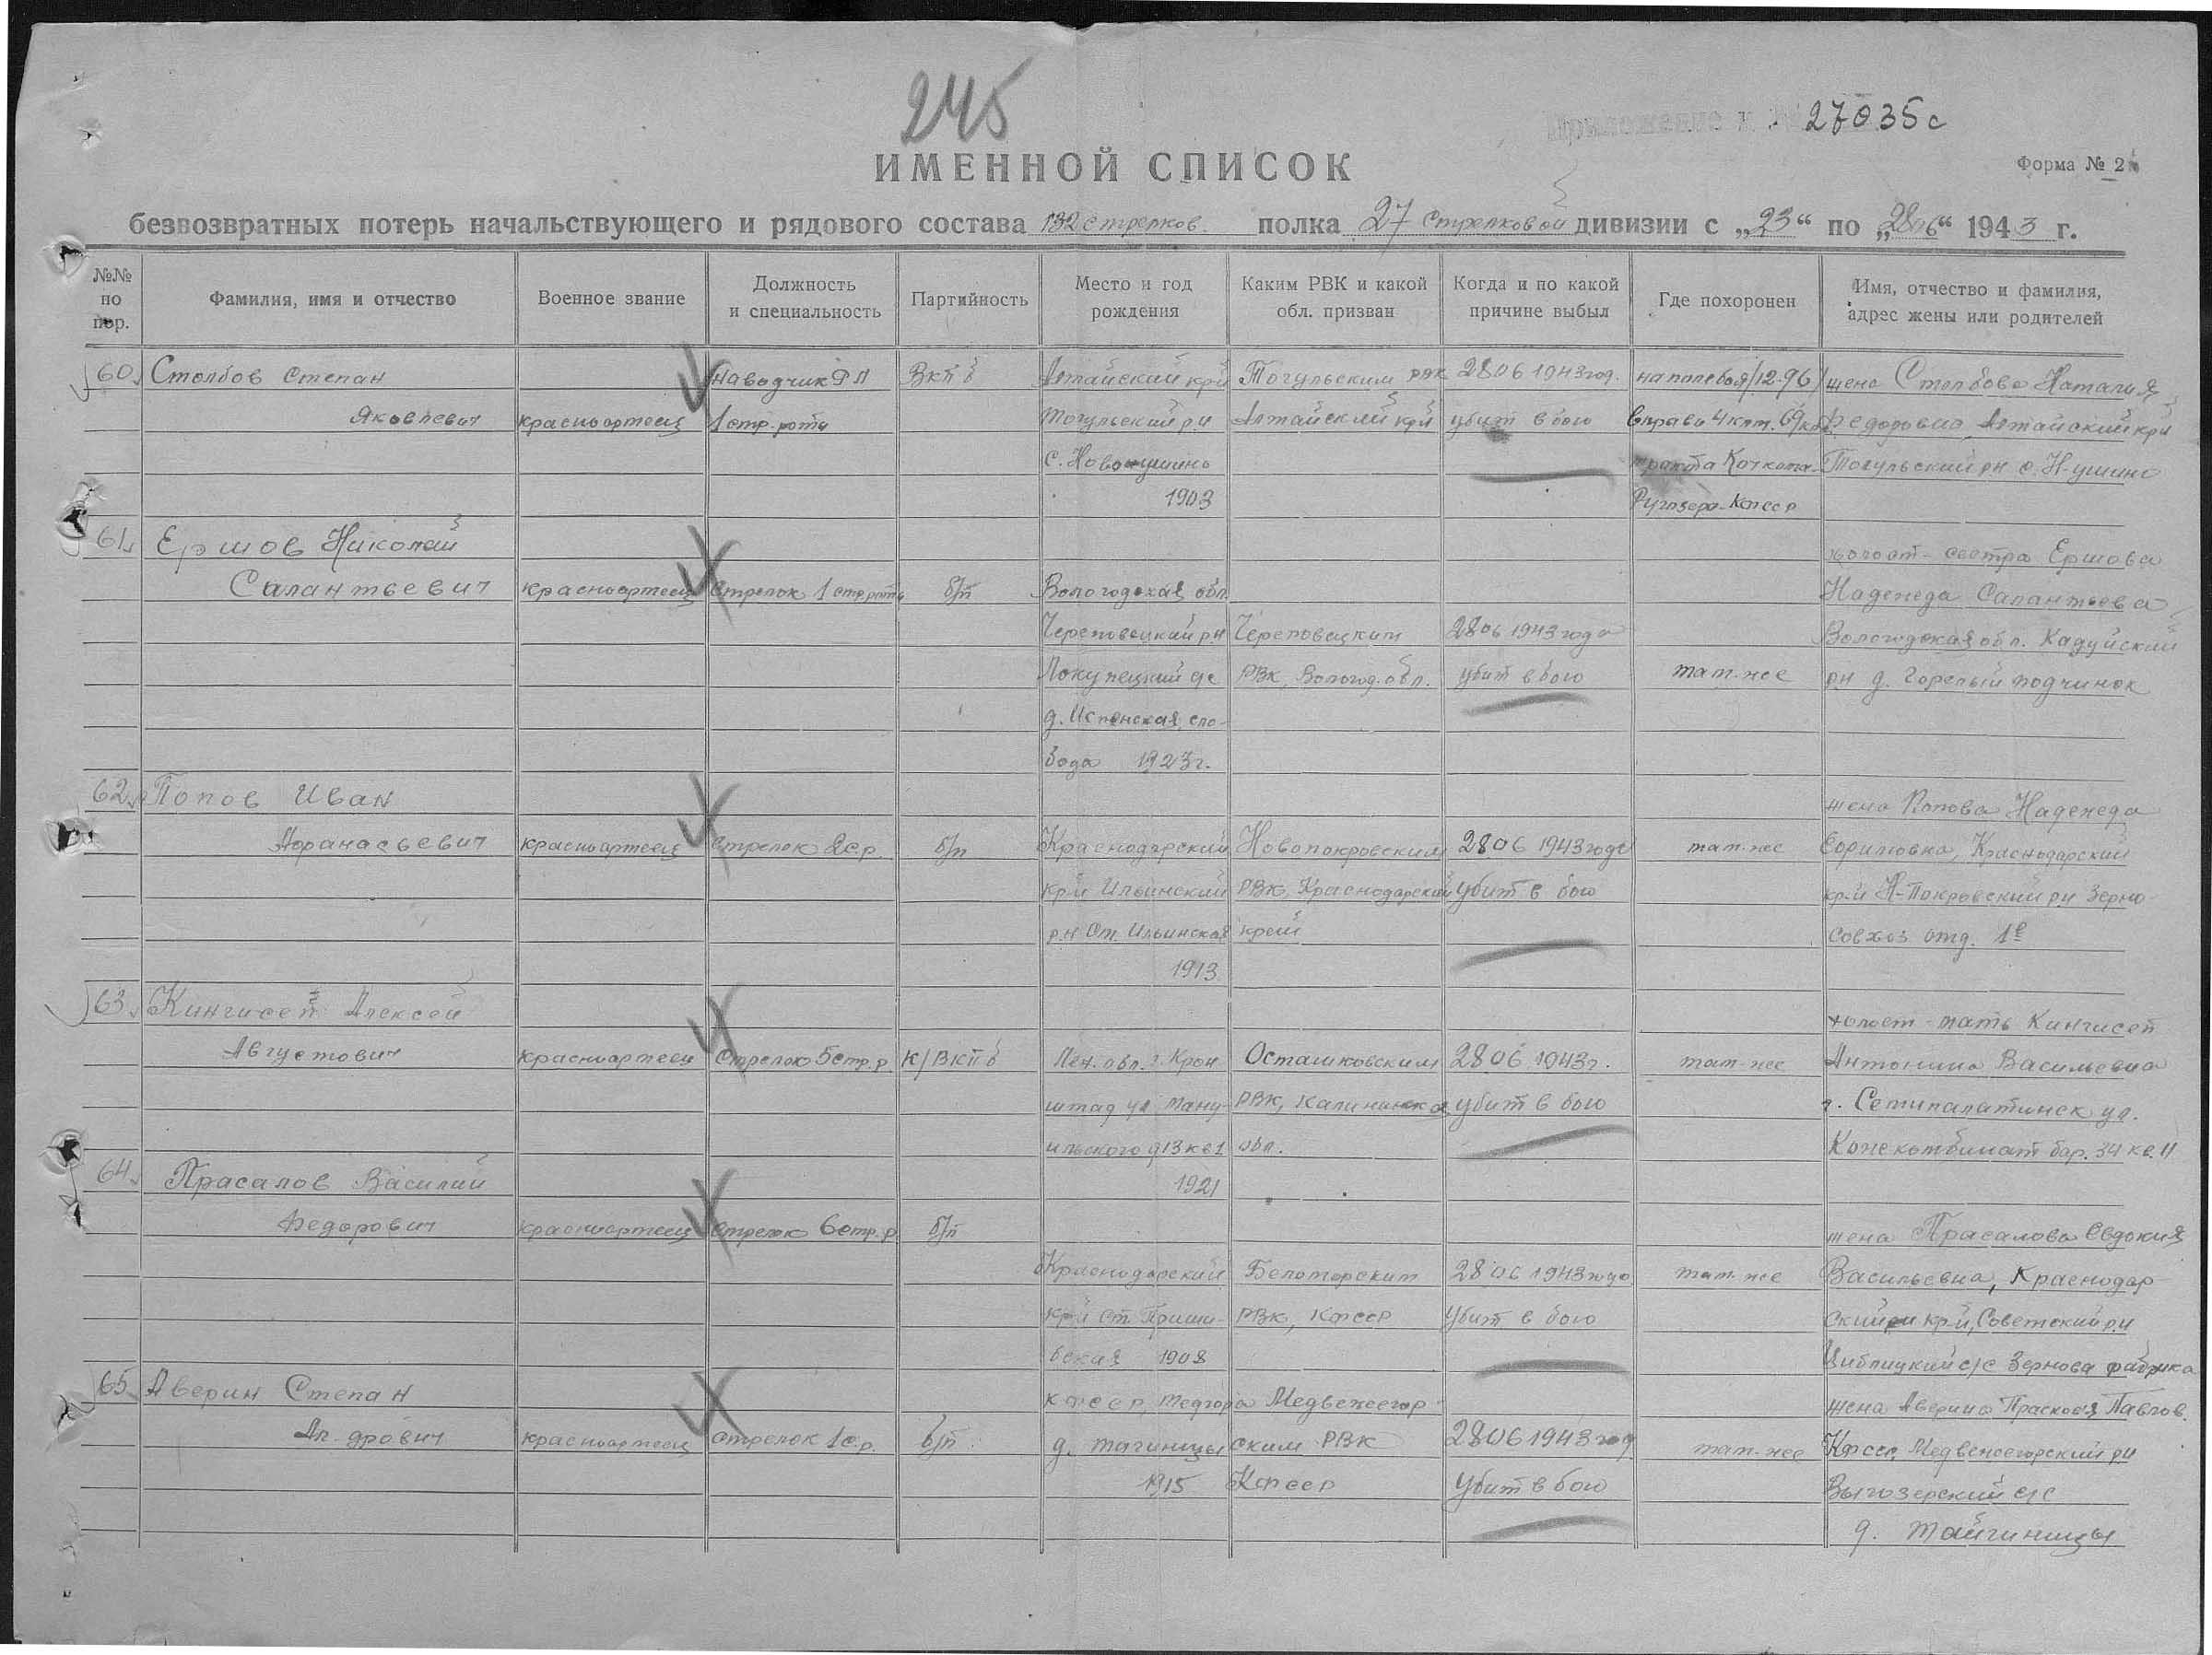 245
Приложение к № 27035с
ИМЕННОЙ СПИСОК
Форма № 2
безвозвратных потерь начальствующего и рядового состава 132 стрелков. полка 27 стрелковой дивизии с „23“ по „28 06“ 1943 г.
№№ по пор.
Фамилия, имя и отчество
Военное звание
Должность и специальность
Партийность
Место и год рождения
Каким РВК и какой обл. призван
Когда и по какой причине выбыл
Где похоронен
Имя, отчество и фамилия, адрес жены или родителей
60 Столбов Степан
Яковлевич
красноармеец
наводчик РП
1 стр. роты
ВКПб
Алтайский край
Тогульский рн
с. Новоиушино
1903
Тогульским РВК
Алтайский край
28 06 1943 год.
убит в бою
на поле боя /12.96/
вправо 4 клт. 69 км
тракта Кочкома-
Ругозеро-Кфсср
жена Столбова Наталия
Федоровна, Алтайский край
Тогульский рн с. Н-ушино
61 Ершов Николай
Салантьевич
красноармеец
стрелок 1 стр роты
б/п
Вологодская обл
Череповецкий рн
Локунецкий с/с
д. Успенская сло-
бода 1923г.
Череповецким
РВК, Вологод. обл.
28 06 1943 года
убит в бою
там-же
холост - сестра Ершова
Надежда Салантьева
Вологодская обл. Кадуйский
рн д. Горелый подчинок
62 Попов Иван
Афанасьевич
красноармеец
стрелок 2 с.р.
б/п
Краснодарский
кр-й Ильинский
р.н ст. Ильинская
1913
Новопокровским
РВК, Краснодарский
край
28 06 1943 года
убит в бою
там-же
жена Попова Надежда
Краснодарский
кр-й Н-Покровский рн Зерно-
совхоз отд. 1е
63 Кингисеп Алексей
Августович
красноармеец
стрелок 5 стр. р.
к/ВКПб
Лен. обл. г. Крон
штад ул. Ману-
ильского д 13 кв 1
1921
Осташковским
РВК, Калининская
обл.
28 06 1943г.
убит в бою
там-же
холост - мать Кингисеп
Антонина Васильевна
г. Семипалатинск ул.
Кожкомбинат бар. 34 кв. 11
64 Прасалов Василий
Федорович
красноармеец
стрелок 6 стр. р
б/п
Краснодарский
кр-й ст. Приши-
бская 1908
Беломорским
РВК, Кфсср
28 06 1943 года
убит в бою
там-же
жена Прасалова Евдокия
Васильевна, Краснодар-
ский кр-й, Советский рн
с/с Зернова фабрика
65 Аверин Степан
Ал-дрович
красноармеец
стрелок 1 с.р.
б/п
Кфсср, Медгора
д. тагиницы
1915
Медвежегор-
ским РВК
Кфсср
28 06 1943 год
убит в бою
там-же
жена Аверина Прасковя Павлов.
Кфсср, Медвежегорский рн
Выгозерский с/с
д. тайгиницы